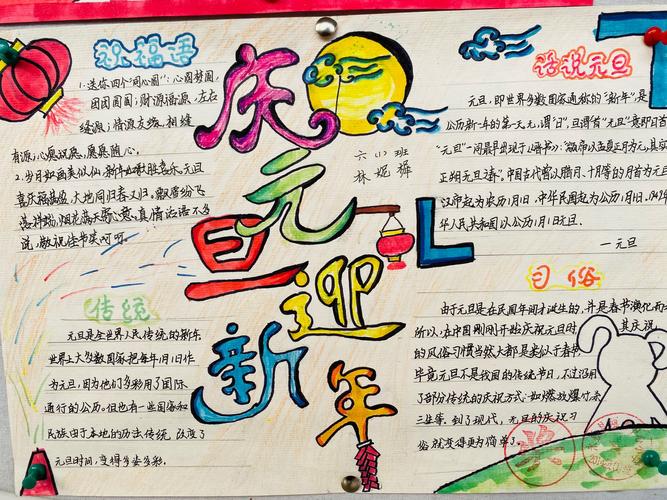 祝福语
1.送你四个“同心圆”：心圆梦圆，
团团圆圆；财源福源，左右
缘源；情源友源，相缘
有源；心愿祝愿，愿愿随心。
2.岁月如画美似仙，新年
喜庆福盈盈，大地同归春又归，
说，敬祝佳节笑呵呵。
传统
元旦是全世界人民传统的新年
世界上大多数国家把每年1月1日作
为元旦，因为他们多利用了国际
通行的公历。但也有一些国家和
民族由于本地的历法传统，改变了
元旦时间，变得多姿多彩。
庆元旦迎新年
六(1)班
林妮
话说元旦
元旦，即世界多数国家通称的“新年”，是
公历新一年的第一天。元，谓“首”，旦谓
“元旦”一词最早出现于《晋书》：
正朔元旦之春”。中国古代曾以腊月、十月等的月首为元旦
汉帝起为农历1月1日，中华民国起为公历1月1日，
华人民共和国以公历1月1日元旦。
—元旦
习俗
由于元旦是在民国年间才诞生的，并是春节演化而
所以，在中国刚刚开始庆祝元旦时，其庆祝
的风俗习惯当然大都是类似于春节
毕竟元旦不是我国的传统节日，不过沿用
了部分传统的庆祝方式，如燃放爆竹、杀
三生等。到了现代，元旦的庆祝习
俗就变得更为简单了。